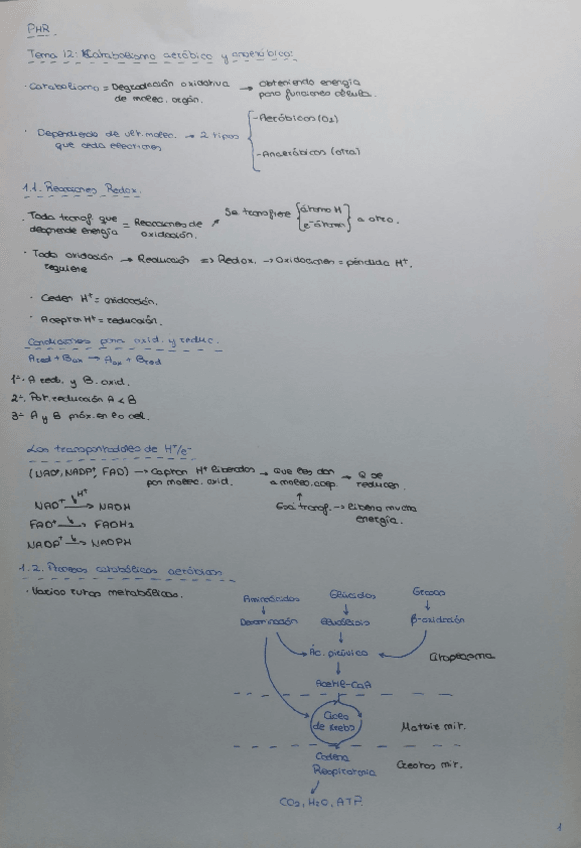 PHR
Tema 12: Catabolismo aeróbico y anaeróbico:
· Catabolismo = Degradación oxidativa de molec. orgán. → Obteniendo energía para funciones célula.
· Dependiendo de últ. molec. que ceda electrones → 2 tipos
- Aeróbicos (O2)
- Anaeróbicos (otra)
1.1. Reacciones Redox.
· Toda transf. que desprende energía = Reacciones de oxidación.
Se transfiere {átomo H
e- átomo} a otro.
· Toda oxidación requiere → Reducción => Redox. → Oxidaciones = pérdida H+.
· Ceden H+ = oxidación.
· Aceptan H+ = reducción.
Condiciones para oxid. y reduc.
Ared + Box → Aox + Bred
1º- A red. y B. oxid.
2º- Pot. reducción A < B
3º- A y B próx. en
Los transportadores de H+/e-
(NAD+, NADP+, FAD) → Captan H+ liberados por molec. oxid. → que los dan a molec. acep. → q se reducen.
Esta transf. → libera mucha energía.
NAD+ H+ → NADH
FAD+ → FADH2
NADP+ → NADPH
1.2. Procesos catabólicos aeróbicos
· Varias rutas metabólicas.
Aminoácidos
Glúcidos
Grasas
Desaminación
Glucólisis
β-oxidación
Ác. pirúvico
Citoplasma
Acetil-CoA
Ciclo de Krebs
Matriz mit.
Cadena Respiratoria
Crestas mit.
CO2, H2O, ATP.
1